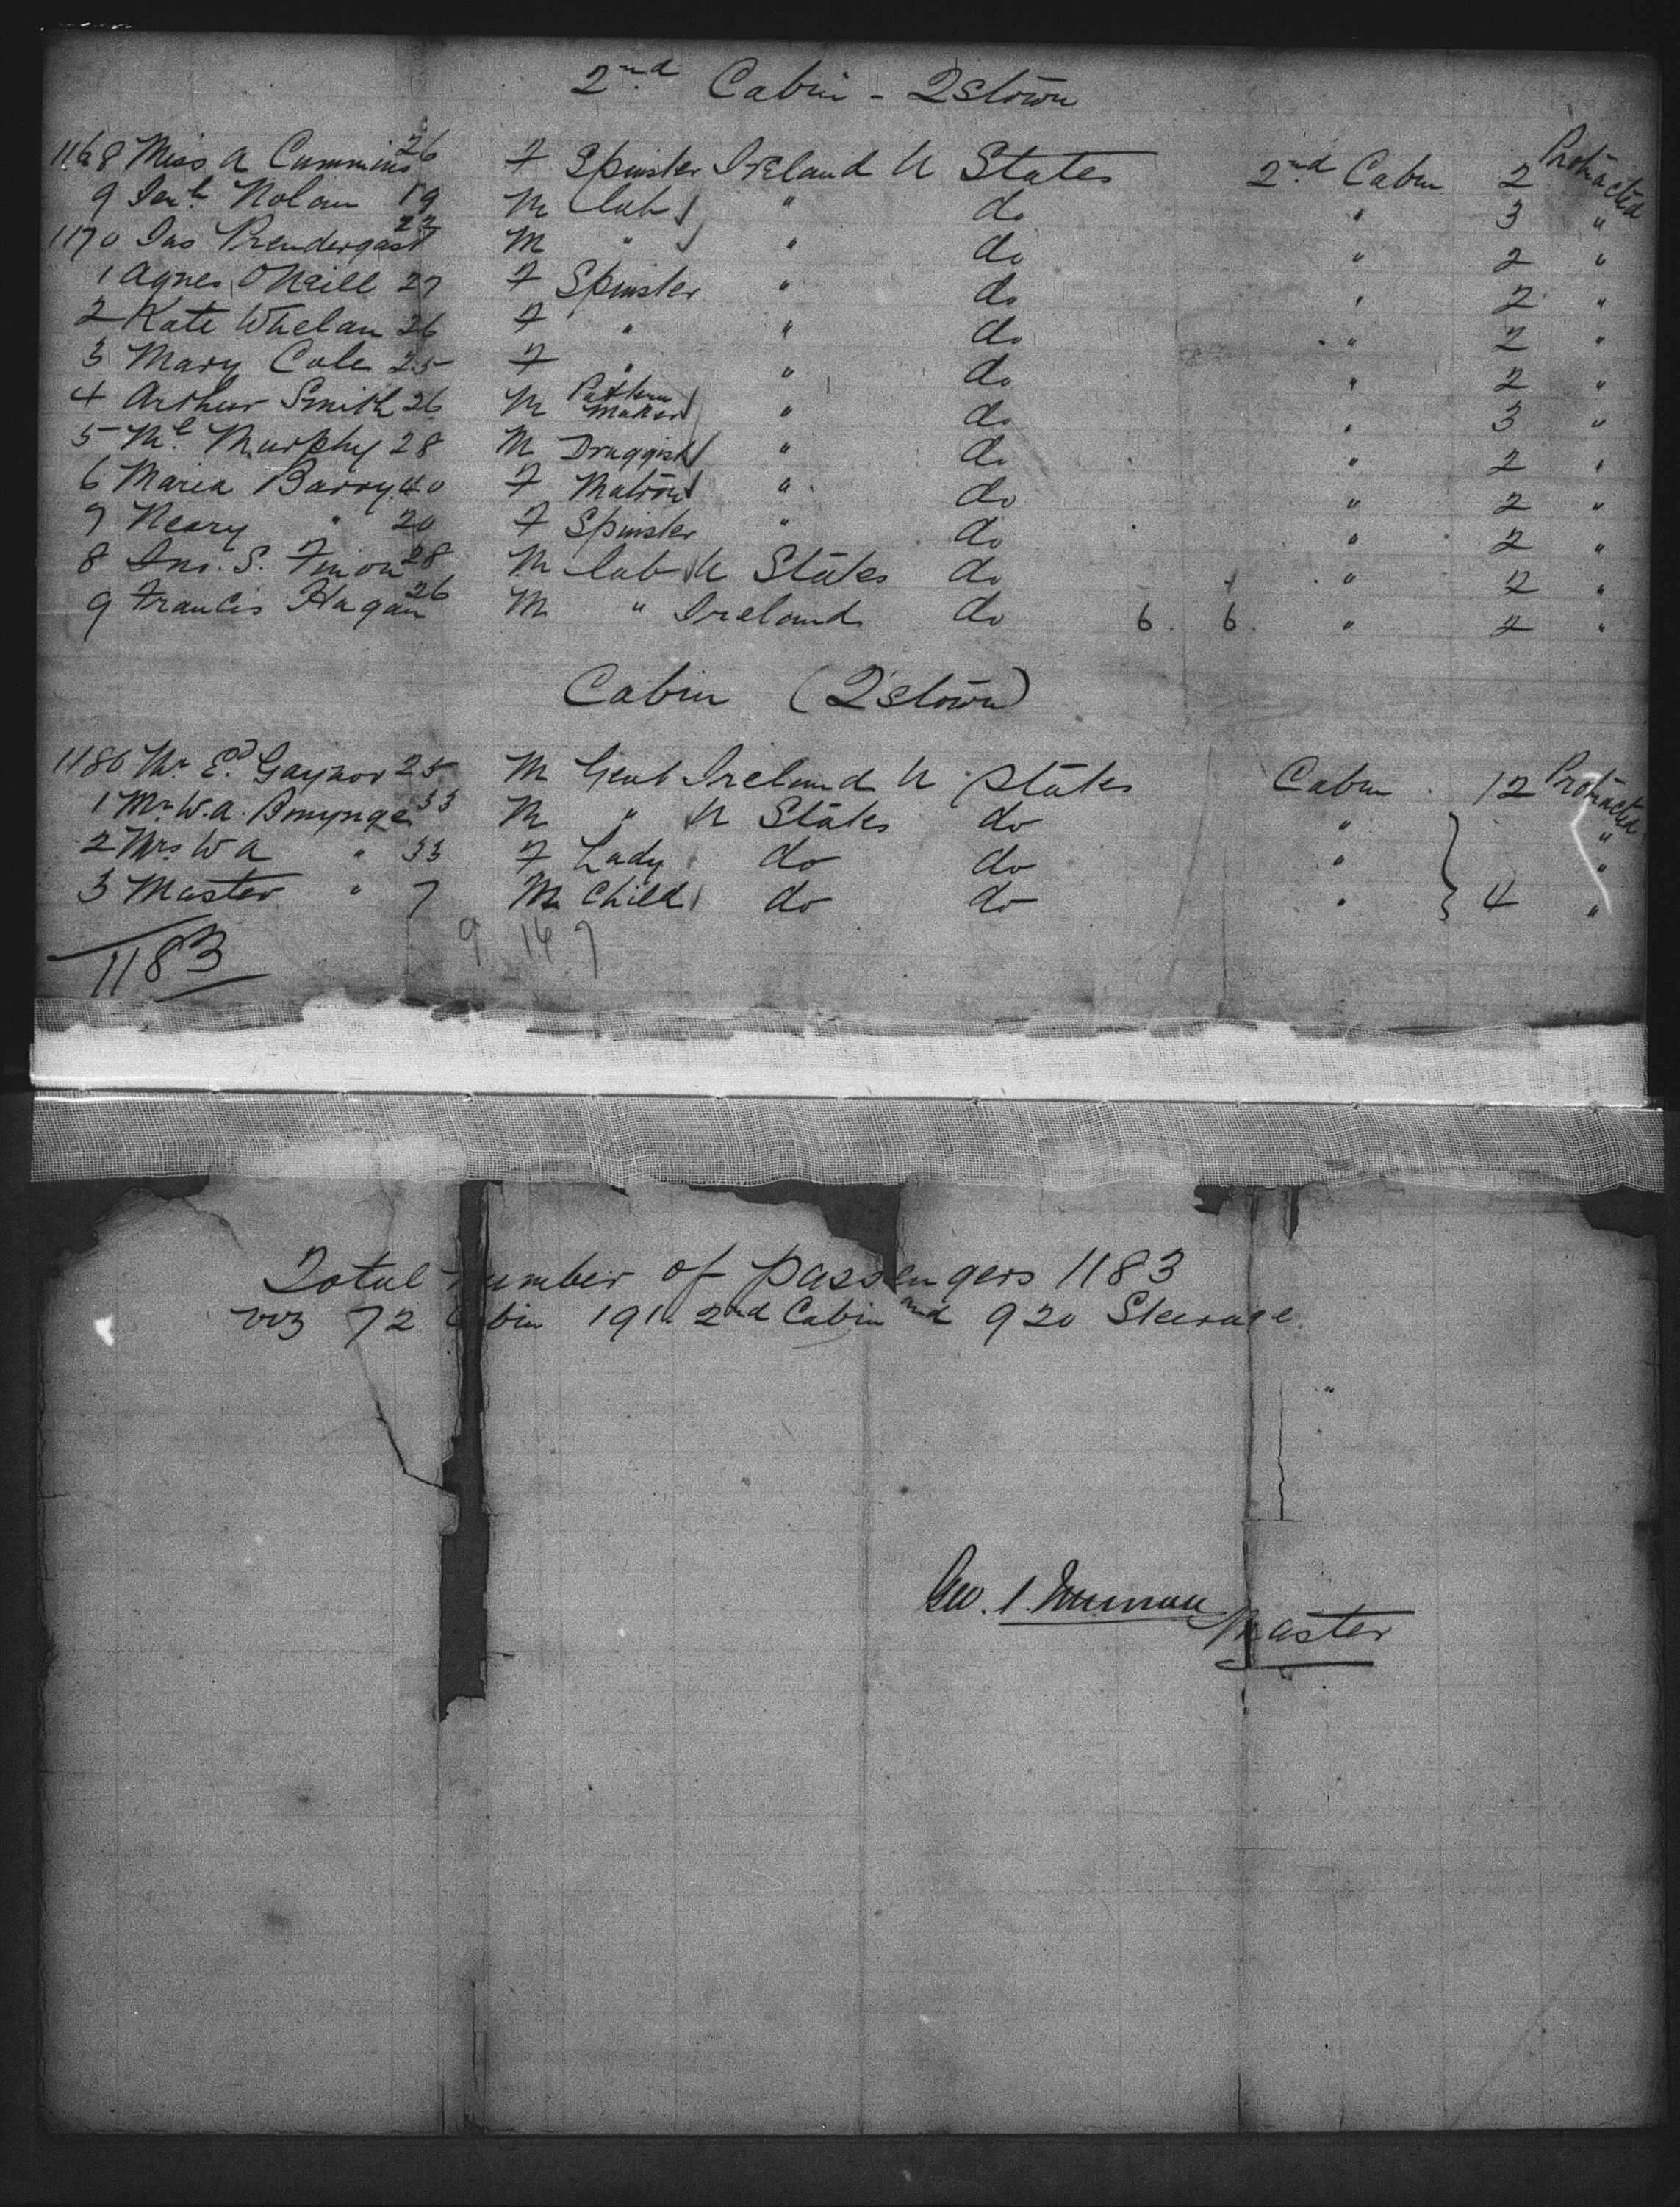 2nd Cabin - Qstown
1168 Miss A Cummins 26 F Spinster Ireland U States 2nd Cabin 2 Protracted
9 Nolan 19 M Lab " do " 3 "
1170 Jas Prendergast 22 M " " do " 2 "
1 Agnes O'Neill 27 F Spinster " do " 2 "
2 Kate Whelan 26 F " " do " 2 "
3 Mary Cole 25 F " " do " 2 "
4 Arthur Smith 26 M Pattern Maker " do " 3 "
5 Ml Murphy 28 M Druggist " do " 2 "
6 Maria Barry 40 F Matron " do " 2 "
7 Neary " 20 F Spinster " do " 2 "
8 Jno. S. 28 M Lab U States do " 2 "
9 Francis Hagan 26 M " Ireland do 6 6 " 2 "
Cabin (Qstown)
1180 Mr Ed Gaynor 25 M Gent Ireland U States Cabin 12 Protracted
1 Mr W.A. 33 M " U States do " "
2 Mrs W A " 33 F Lady do do " "
3 Master " 7 M Child do do " 4 "
1183
9 14 7
Total Number of passengers 1183
viz 72 Cabin 191 2nd Cabin and 920 Steerage
Geo. Master